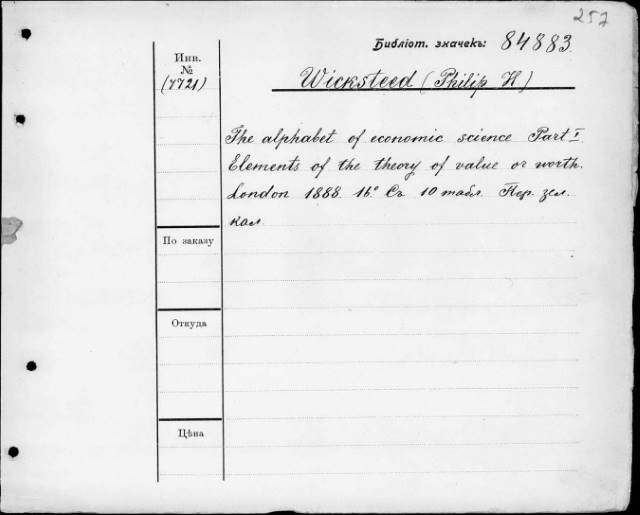 257
Библіот. значекъ: 84883
Инв.
№
(7721)
Wicksteed (Philip H)
The alphabet of economic science Part I
Elements of the theory of value or worth.
London 1888. 16° Съ 10 табл. Пер. зел.
кал.
По заказу
Откуда
Цѣна